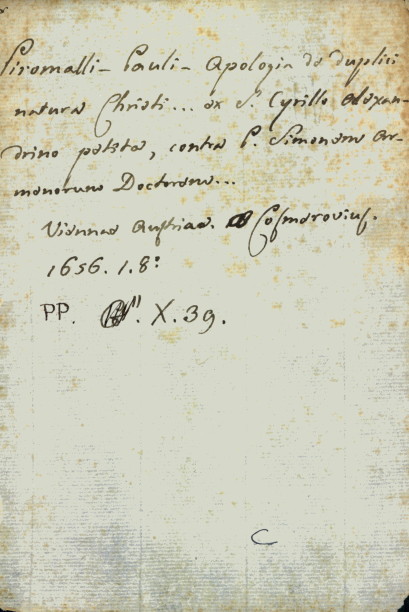 Piromalli - Pauli - Apologia de duplici
natura Christi... ex S. Cyrillo Alexan-
drino petita, contra P. Simonem Ar-
menorum Doctorem...
Viennae Austriae. Cosmerovius.
1656. 1. 8:
PP. X. 39.
C